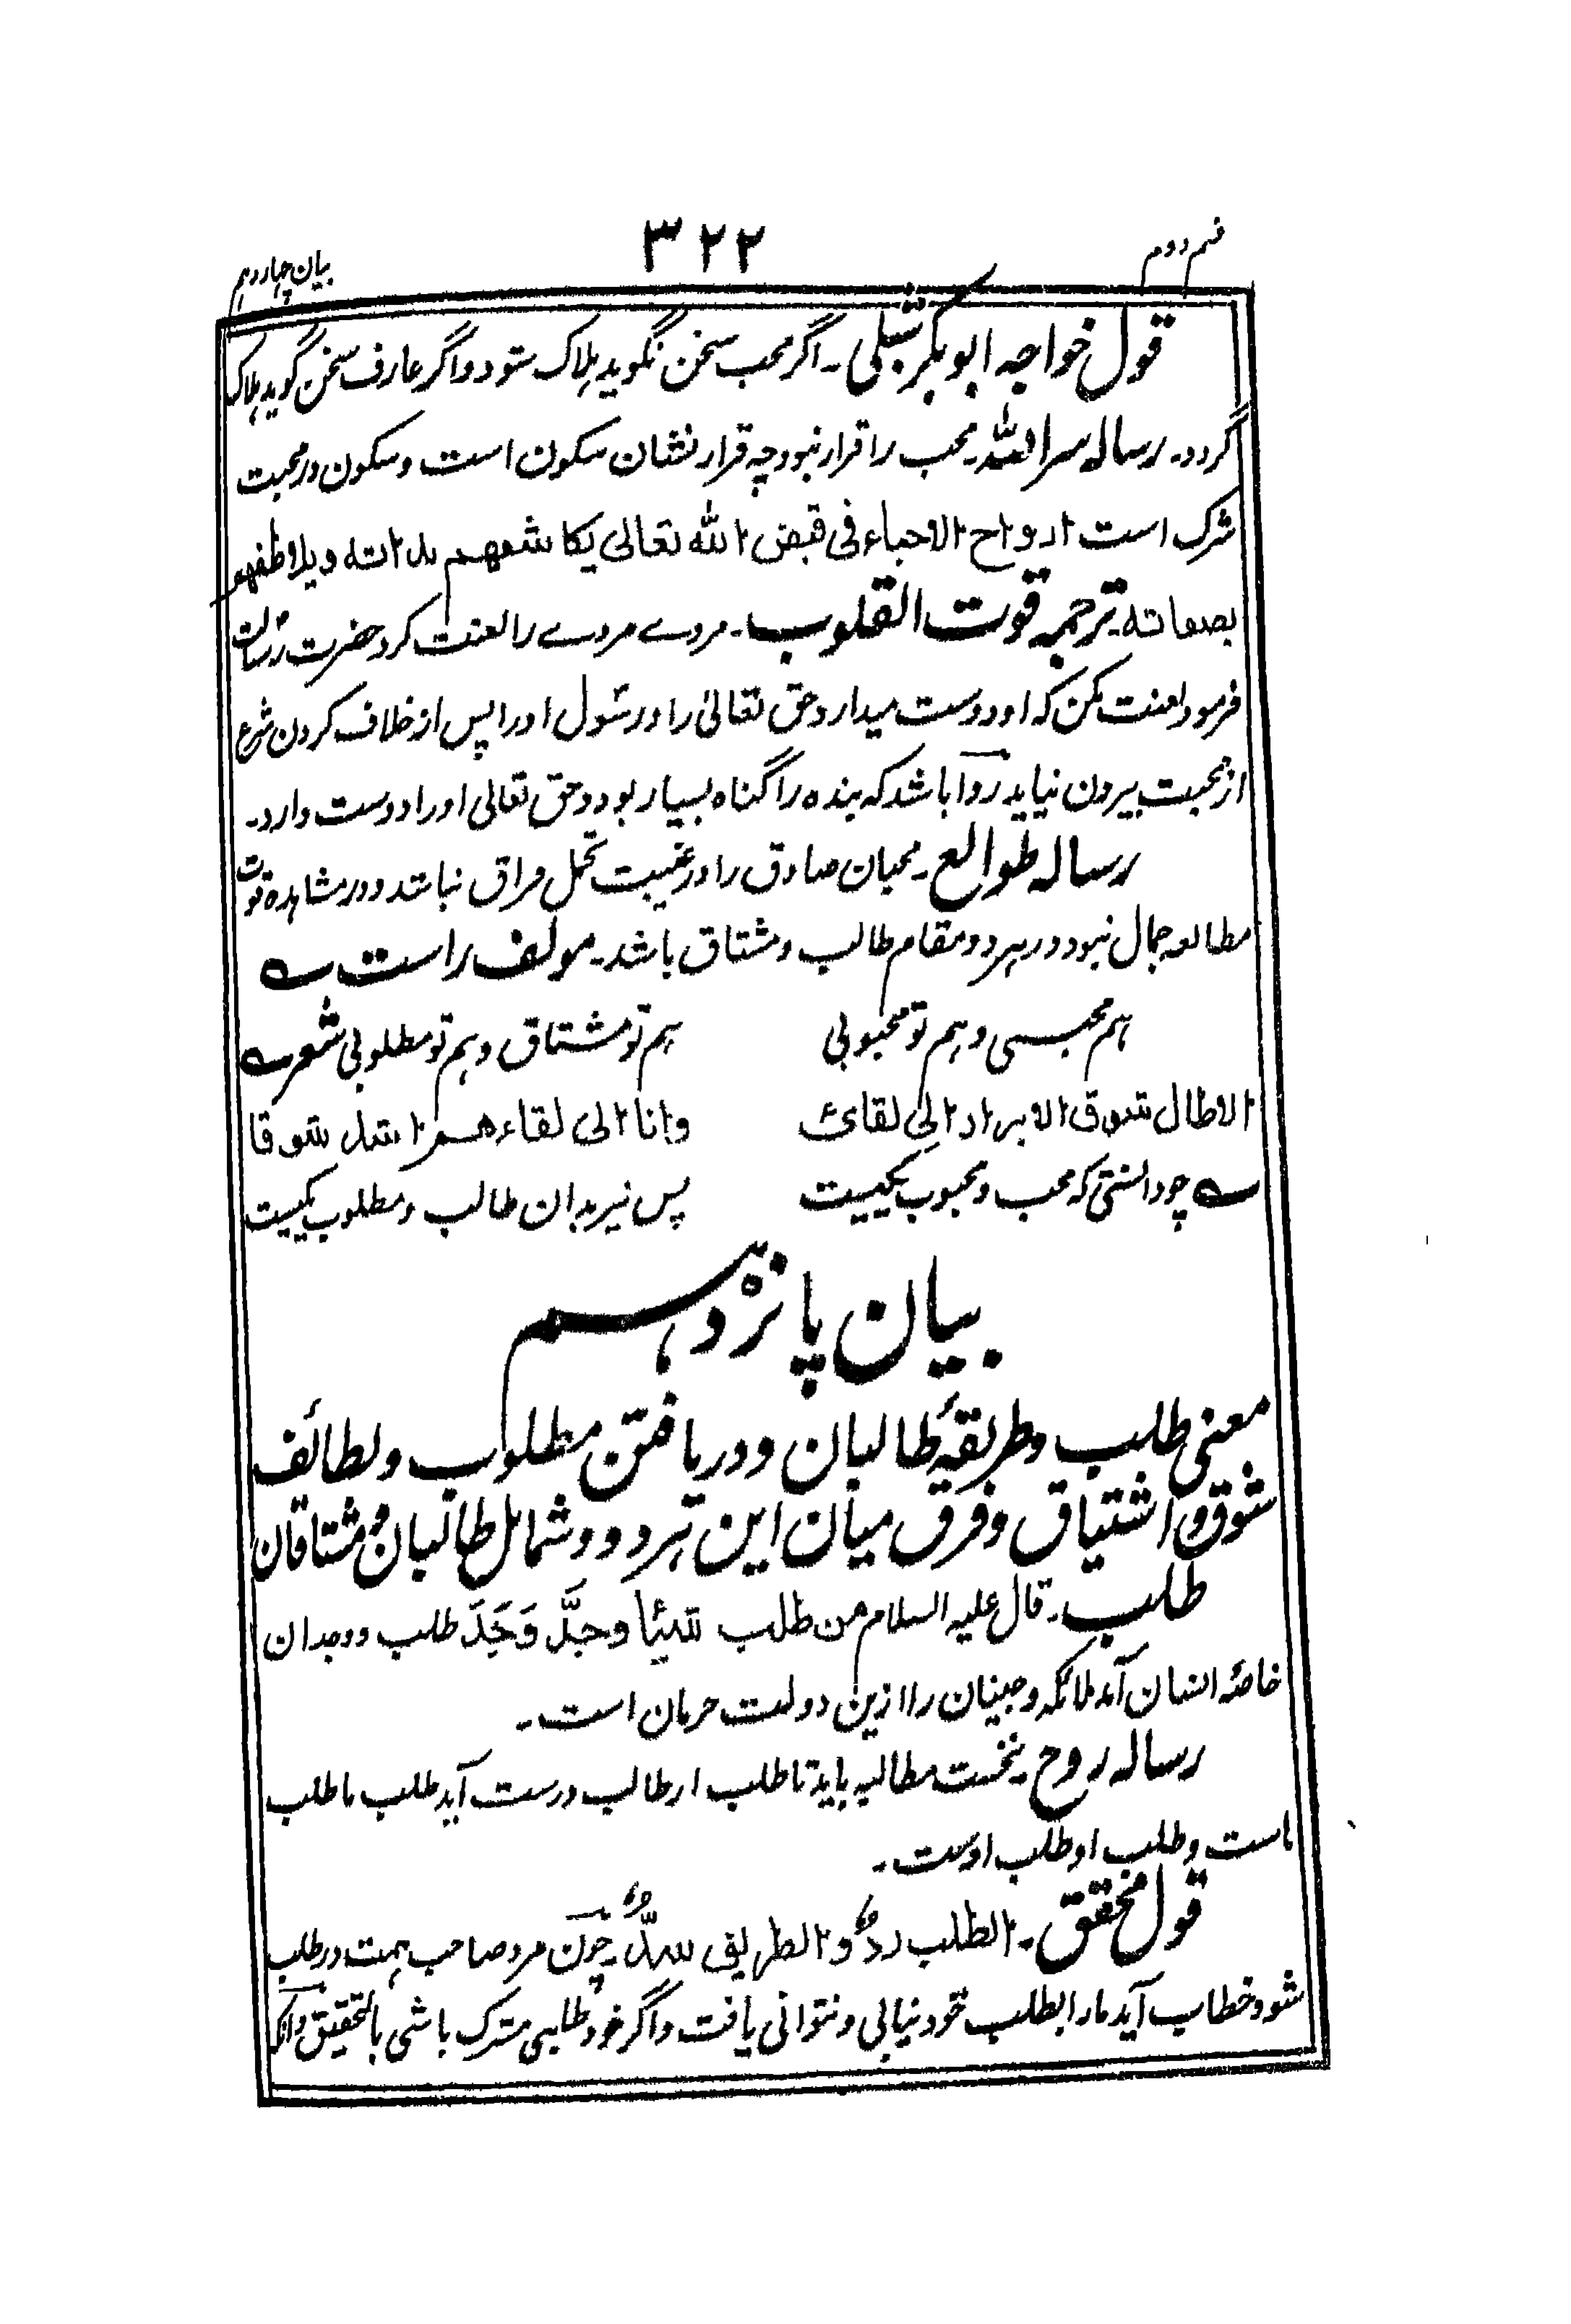 قسم دوم
۳۲۲
بیان چهاردهم
قول خواجه ابوبکر شبلی۔ اگر محب سخن نگوید ہلاک شود و اگر عارف سخن گوید ہلاک
گردد۔ رساله سرالله۔ محب را قرار نبود چه قرار نشان سکون است و سکون در محبت
شرک است ارواح الاحباء فی قبض الله تعالی یکاشفهم بذاته ویلاطفهم
بصفاته۔ ترجمه قوت القلوب۔ مردے مردے را لعنت کرد حضرت رسالت
فرمود لعنت مکن که او دوست میدارد حق تعالیٰ را و رسول او را پس از خلاف کردن شرع
از محبت بیرون نیاید روا باشد که بنده را گناه بسیار بود و حق تعالی او را دوست دارد۔
رساله طوالع۔ محبان صادق را در غیبت تحمل فراق نباشد و در مشاہده قوت
مطالعه جمال نبود و در ہر دو مقام طالب و مشتاق باشد۔ مولف راست ؎
ہم محبی و ہم تو محبوبی ہم تو مشتاق و ہم تو مطلوبی شعر ؎
الا طال شوق الابرار الی لقائ وانا الی لقاءهم اشد شوقا
؎ چو دانستی که محب و محبوب یکیست پس نیز بدان طالب و مطلوب یکیست
بیان پانزدہم
معنی طلب و طریقۂ طالبان و دریافتن مطلوب و لطائف
شوق و اشتیاق و فرق میان این ہر دو و شمائل طالبان و مشتاقان
طلب۔ قال علیه السلام من طلب شیئا وجدَّ وَجَدَ طلب و وجدان
خاصۂ انسان آمد ملائکه و جنیان را ازین دولت حرمان است۔
رساله روح۔ نخست مطالبه باید تا طلب از طالب درست آید طلب ما طلب
ماست و طلب او طلب اوست۔
قول محقق۔ الطلب ردٌّ و الطریق سدٌّ۔ چون مرد صاحب ہمت در طلب
شود خطاب آید مارا بطلب خود نیابی و نتوانی یافت و اگر خود طلبی مشرک باشی بالتحقیق و آنکه